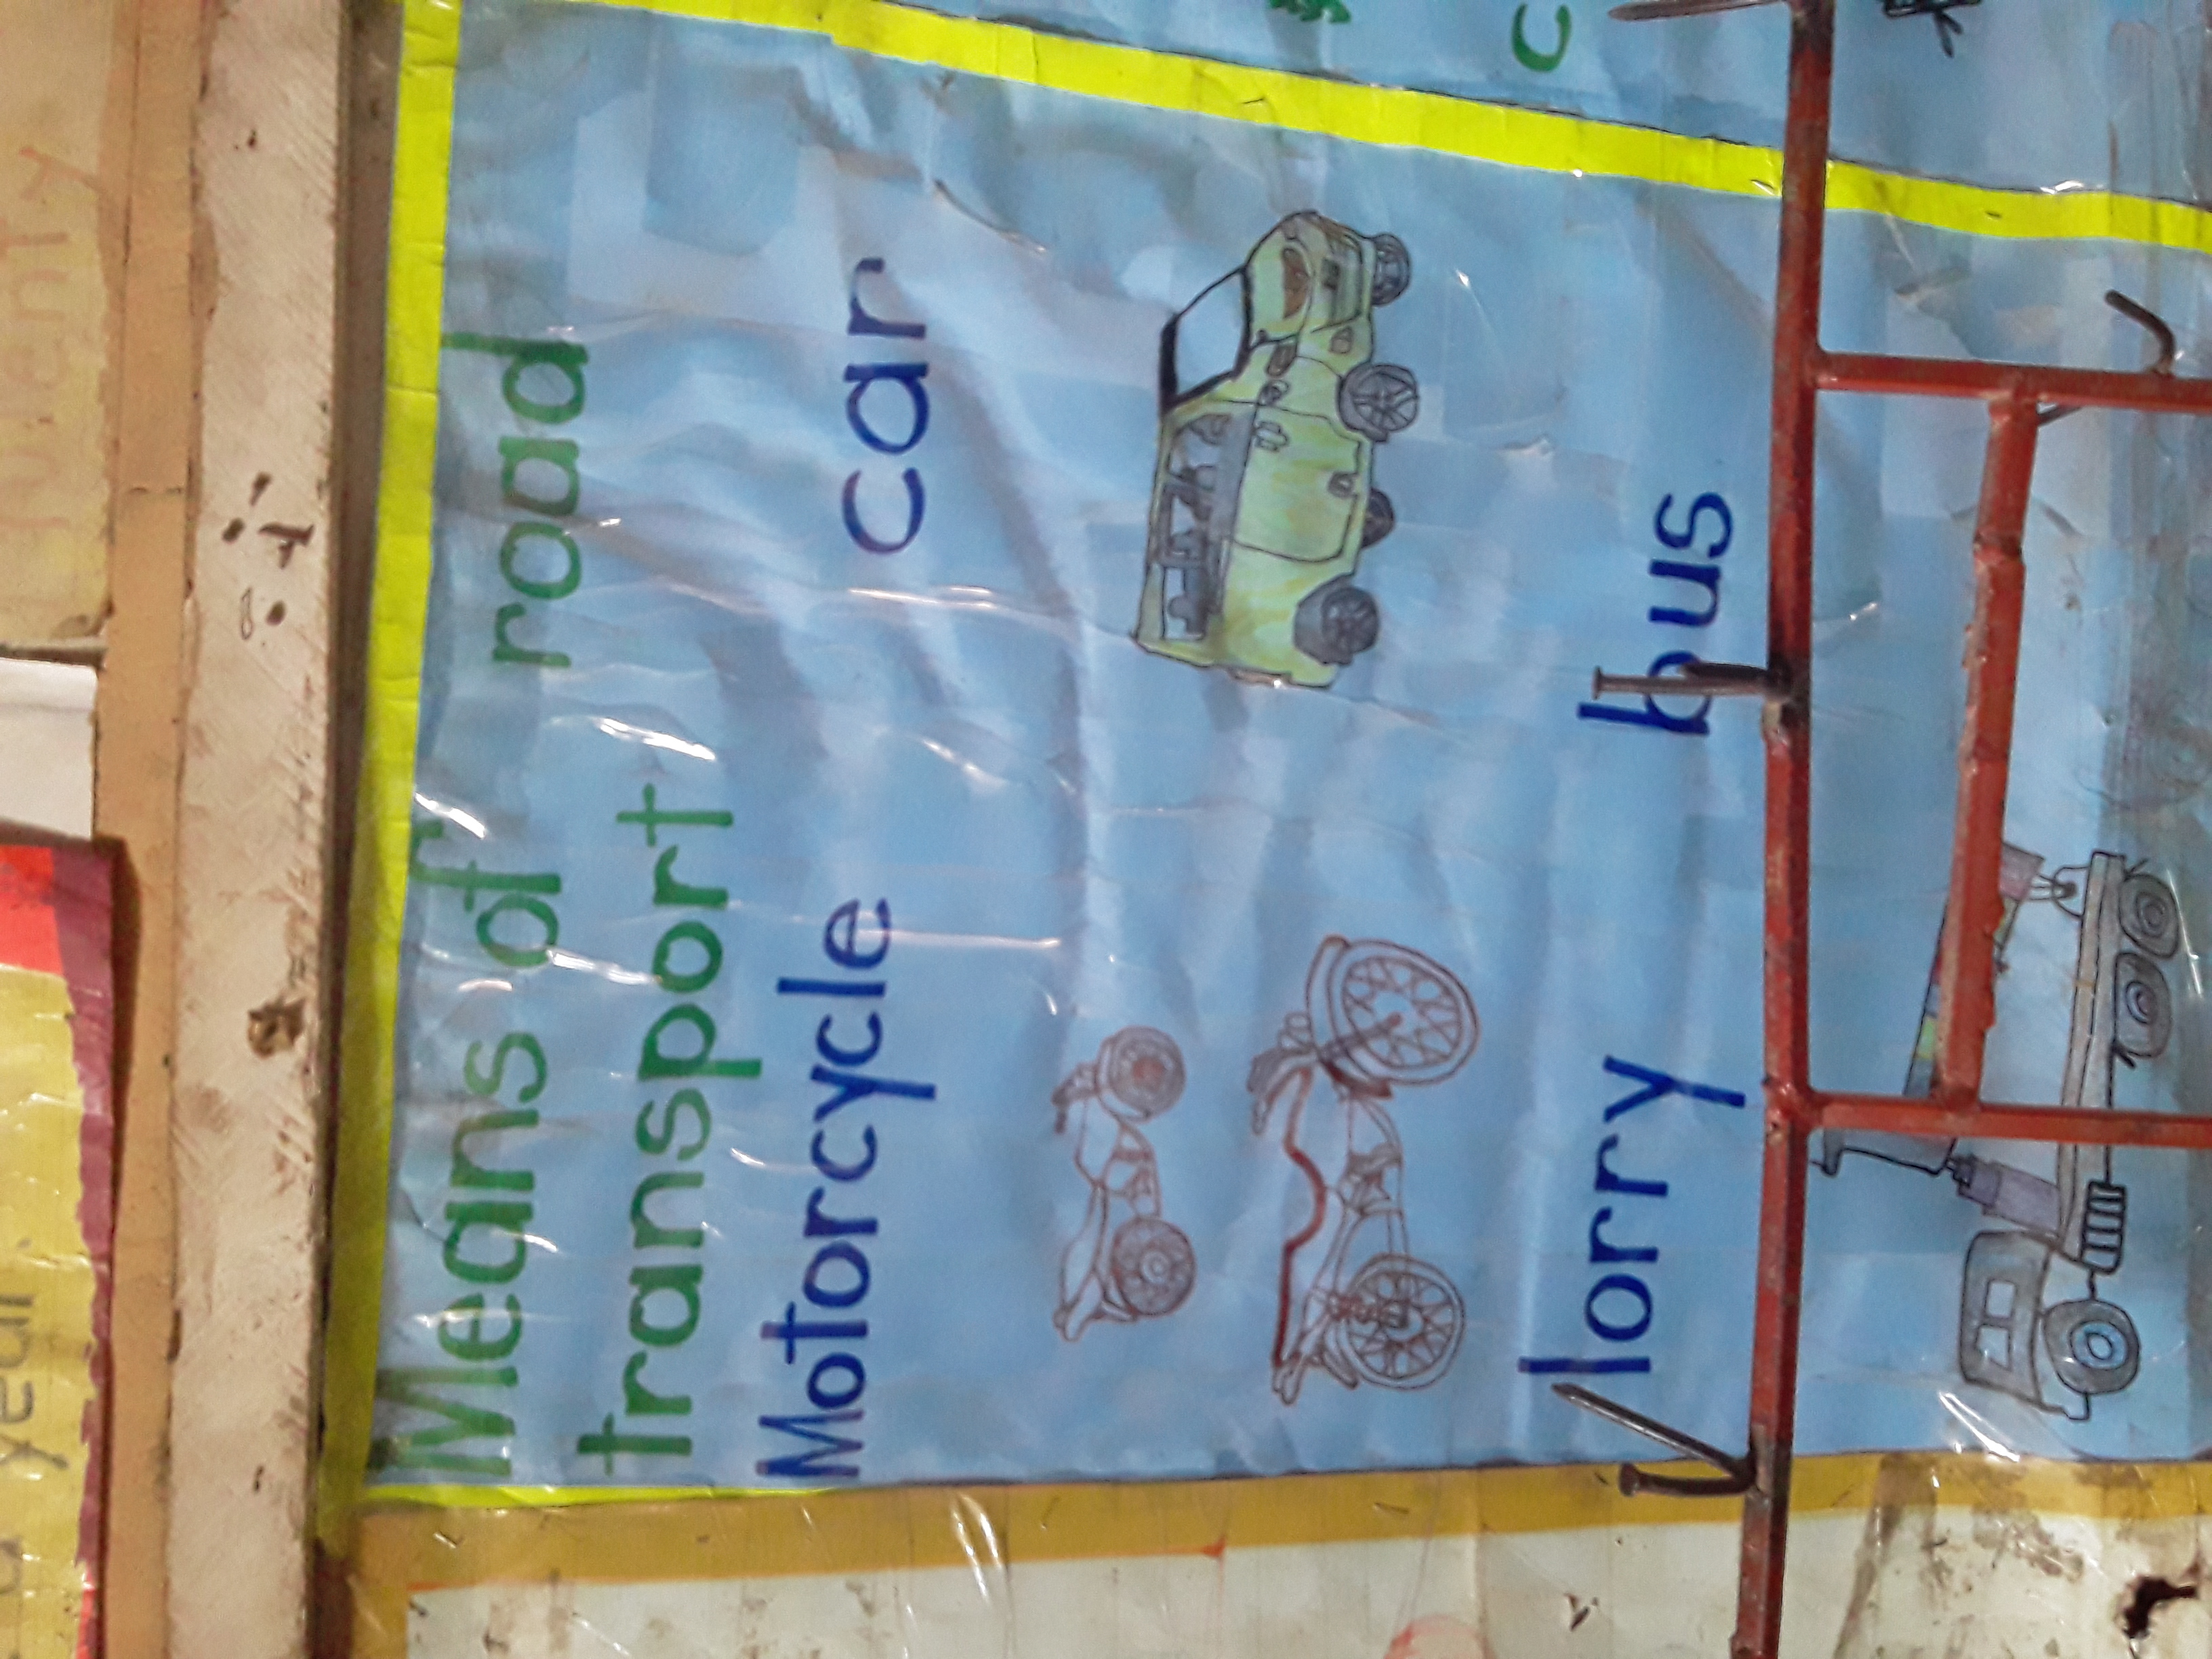 a year.
Means of road
transport
Motorcycle car
lorry bus